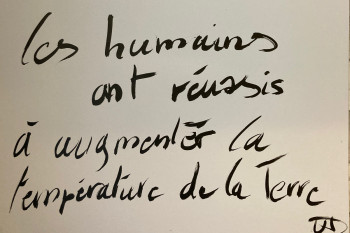 les humains
ont réussis
à augmenter la
température de la Terre